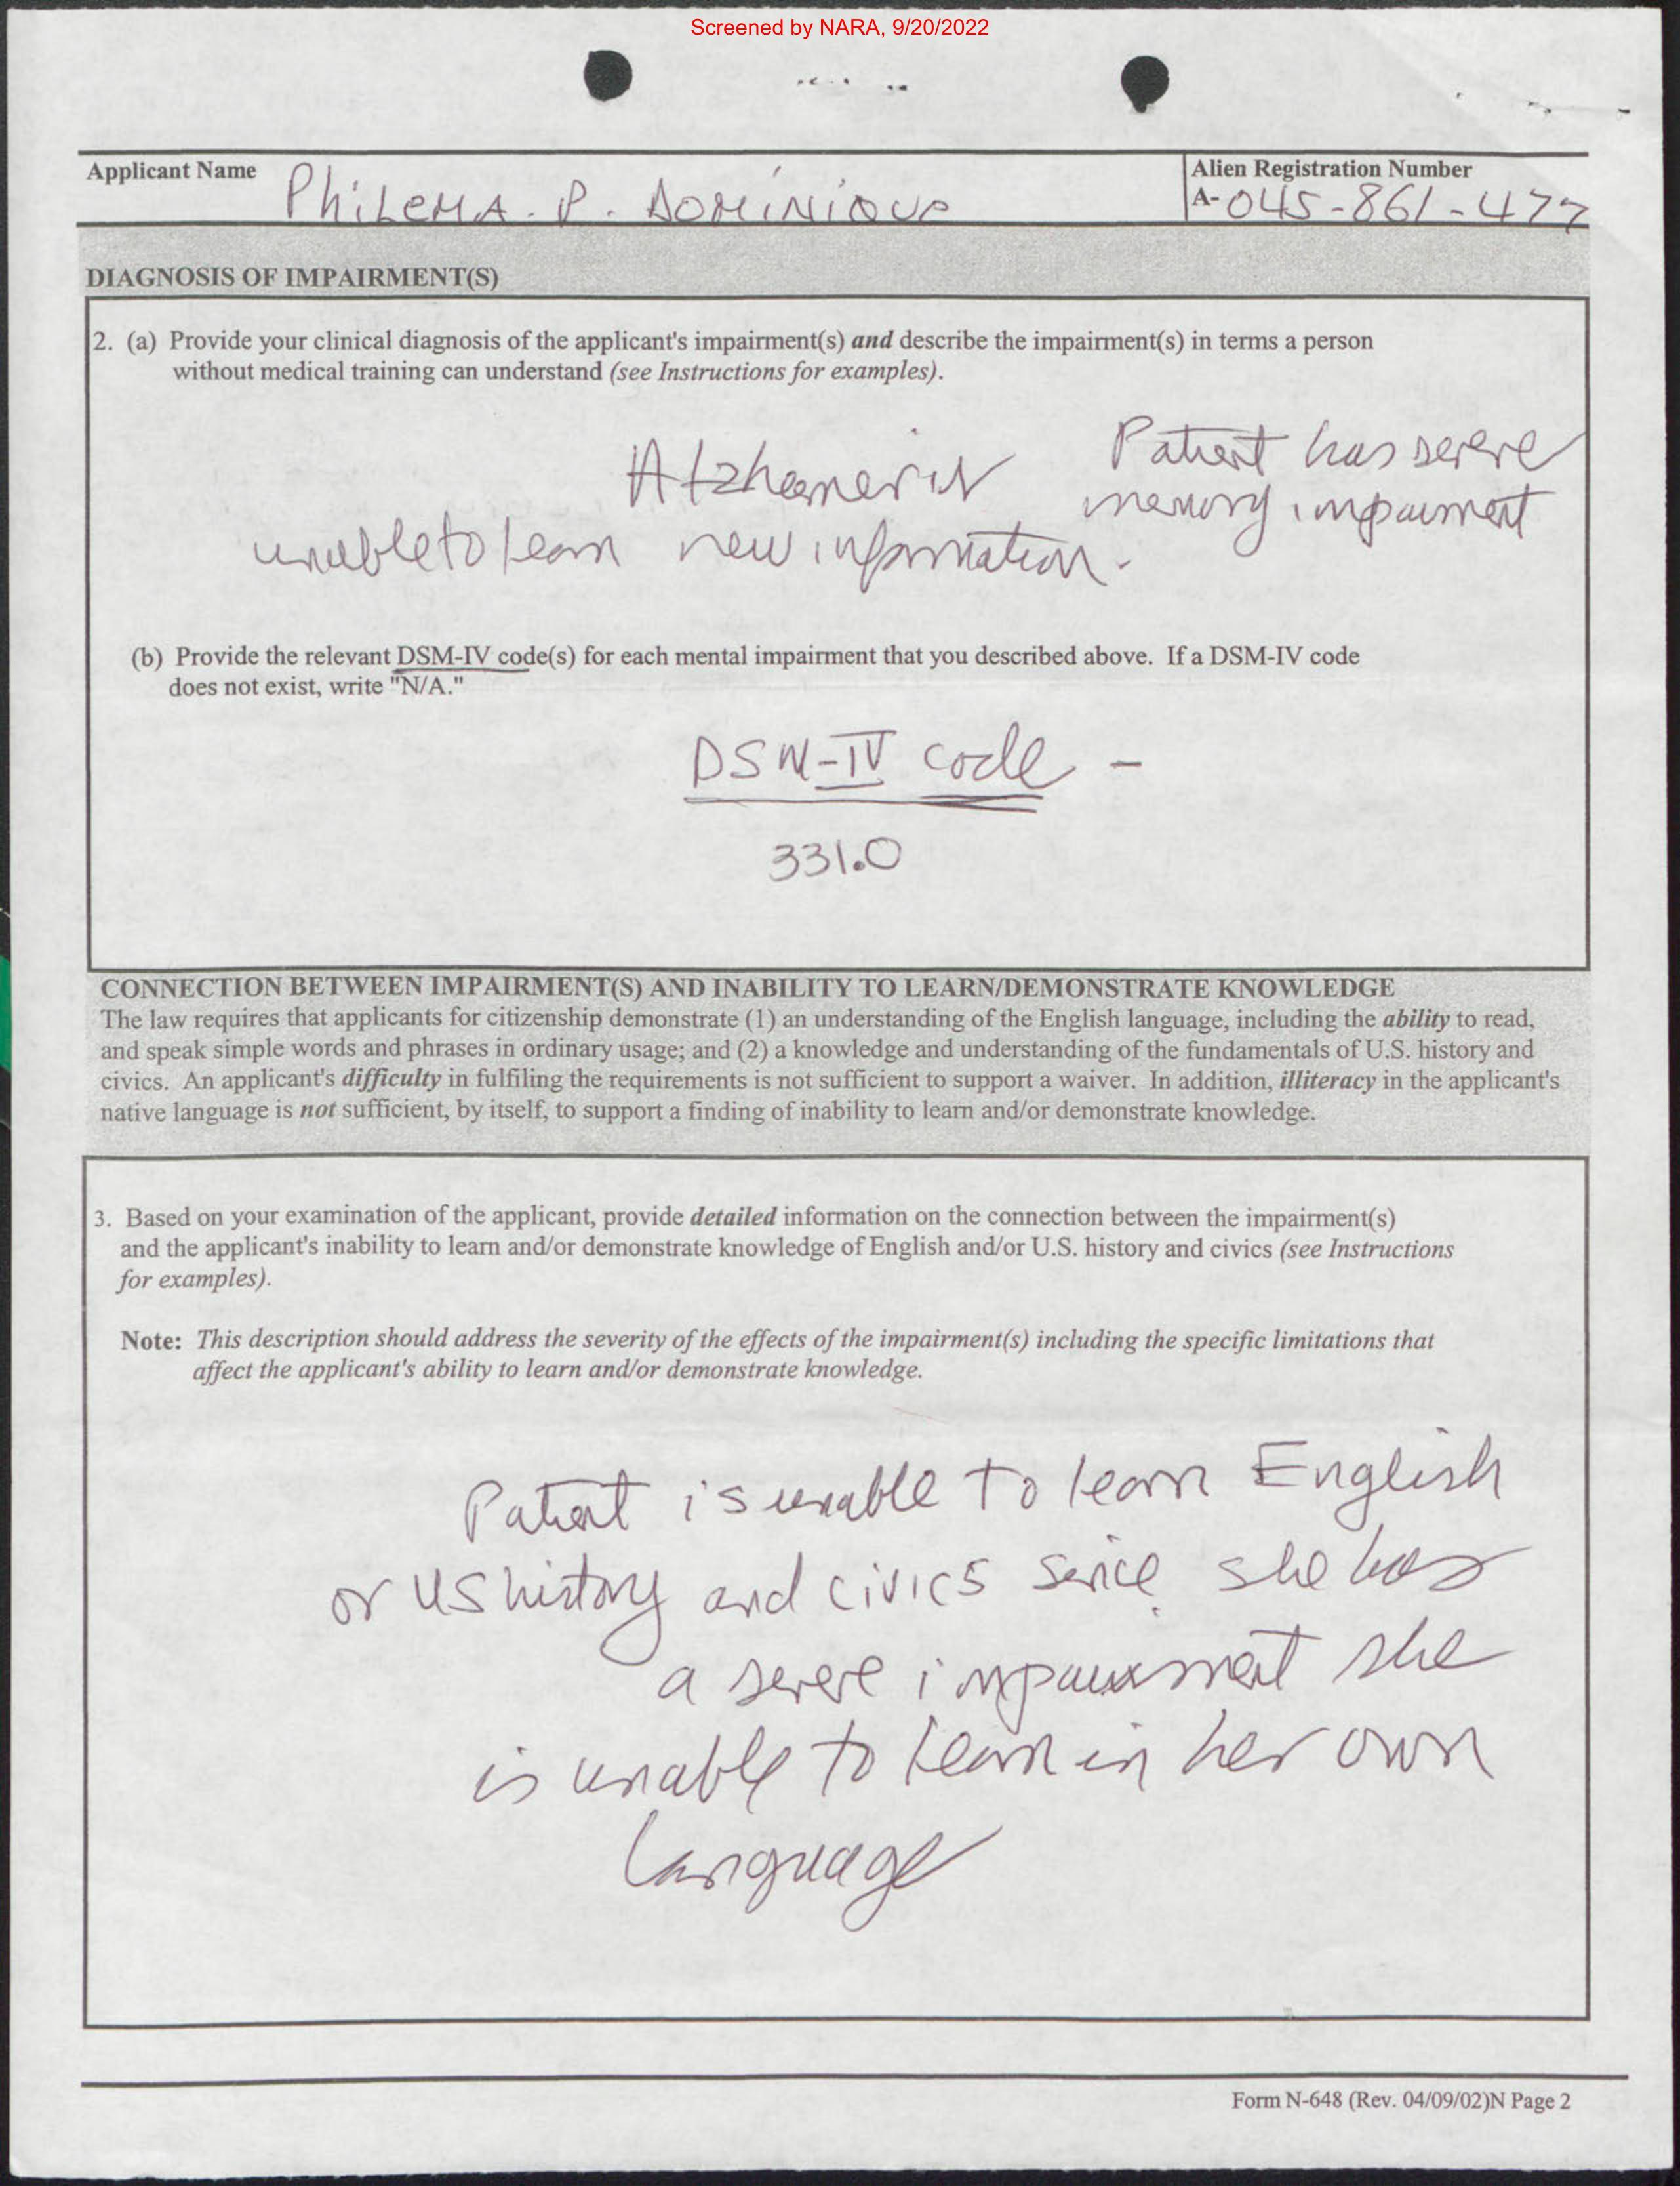 Screened by NARA, 9/20/2022
Applicant Name
PhiLeMA. P. DOMiNiQUE
Alien Registration Number
A- 045-861-477
DIAGNOSIS OF IMPAIRMENT(S)
2. (a) Provide your clinical diagnosis of the applicant's impairment(s) and describe the impairment(s) in terms a person
without medical training can understand (see Instructions for examples).
Patient has severe
memory impairment
unable to learn new information.
(b) Provide the relevant DSM-IV code(s) for each mental impairment that you described above. If a DSM-IV code
does not exist, write "N/A."
DSM-IV code -
331.0
CONNECTION BETWEEN IMPAIRMENT(S) AND INABILITY TO LEARN/DEMONSTRATE KNOWLEDGE
The law requires that applicants for citizenship demonstrate (1) an understanding of the English language, including the ability to read,
and speak simple words and phrases in ordinary usage; and (2) a knowledge and understanding of the fundamentals of U.S. history and
civics. An applicant's difficulty in fulfiling the requirements is not sufficient to support a waiver. In addition, illiteracy in the applicant's
native language is not sufficient, by itself, to support a finding of inability to learn and/or demonstrate knowledge.
3. Based on your examination of the applicant, provide detailed information on the connection between the impairment(s)
and the applicant's inability to learn and/or demonstrate knowledge of English and/or U.S. history and civics (see Instructions
for examples).
Note: This description should address the severity of the effects of the impairment(s) including the specific limitations that
affect the applicant's ability to learn and/or demonstrate knowledge.
Patient is unable to learn English
or US history and civics since she has
a severe impairment she
is unable to learn in her own
language
Form N-648 (Rev. 04/09/02)N Page 2